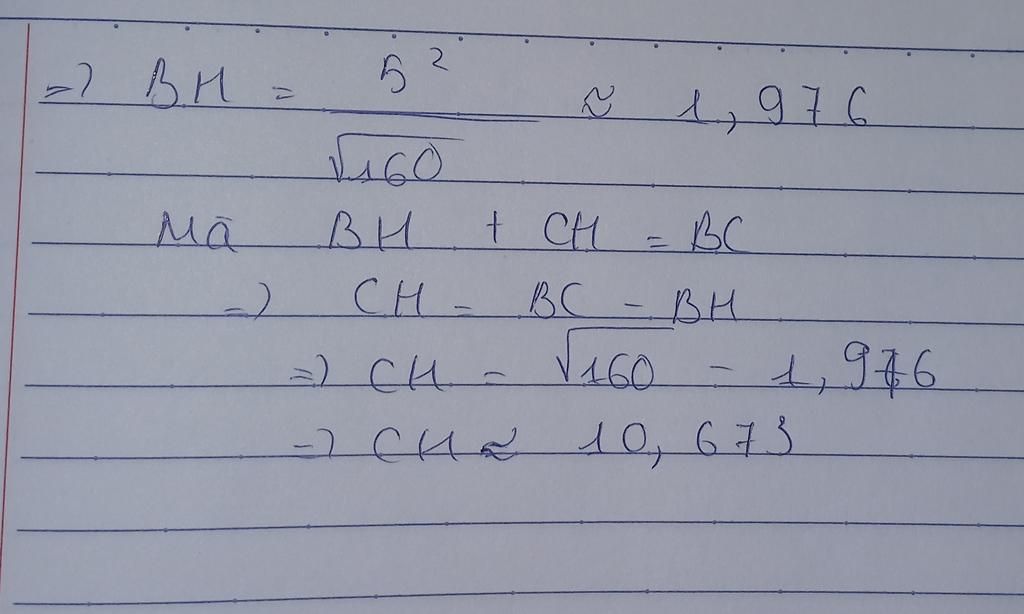 => BH = 5² / √160 ≈ 1,976
Mà BH + CH = BC
=> CH = BC - BH
=> CH = √160 - 1,976
=> CH ≈ 10,673